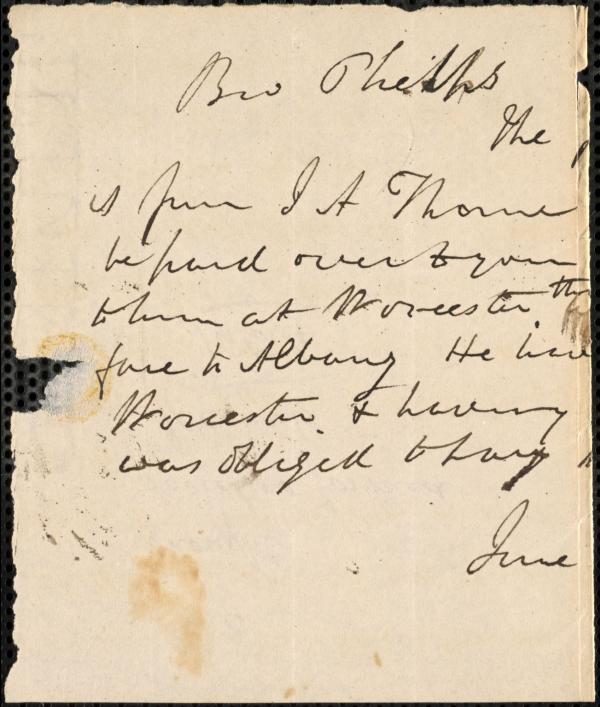 Bro Phelps
The
is from J A Thome
be paid over to you
to him at Worcester
fare to Albany He
Worcester & having
was obliged to
June